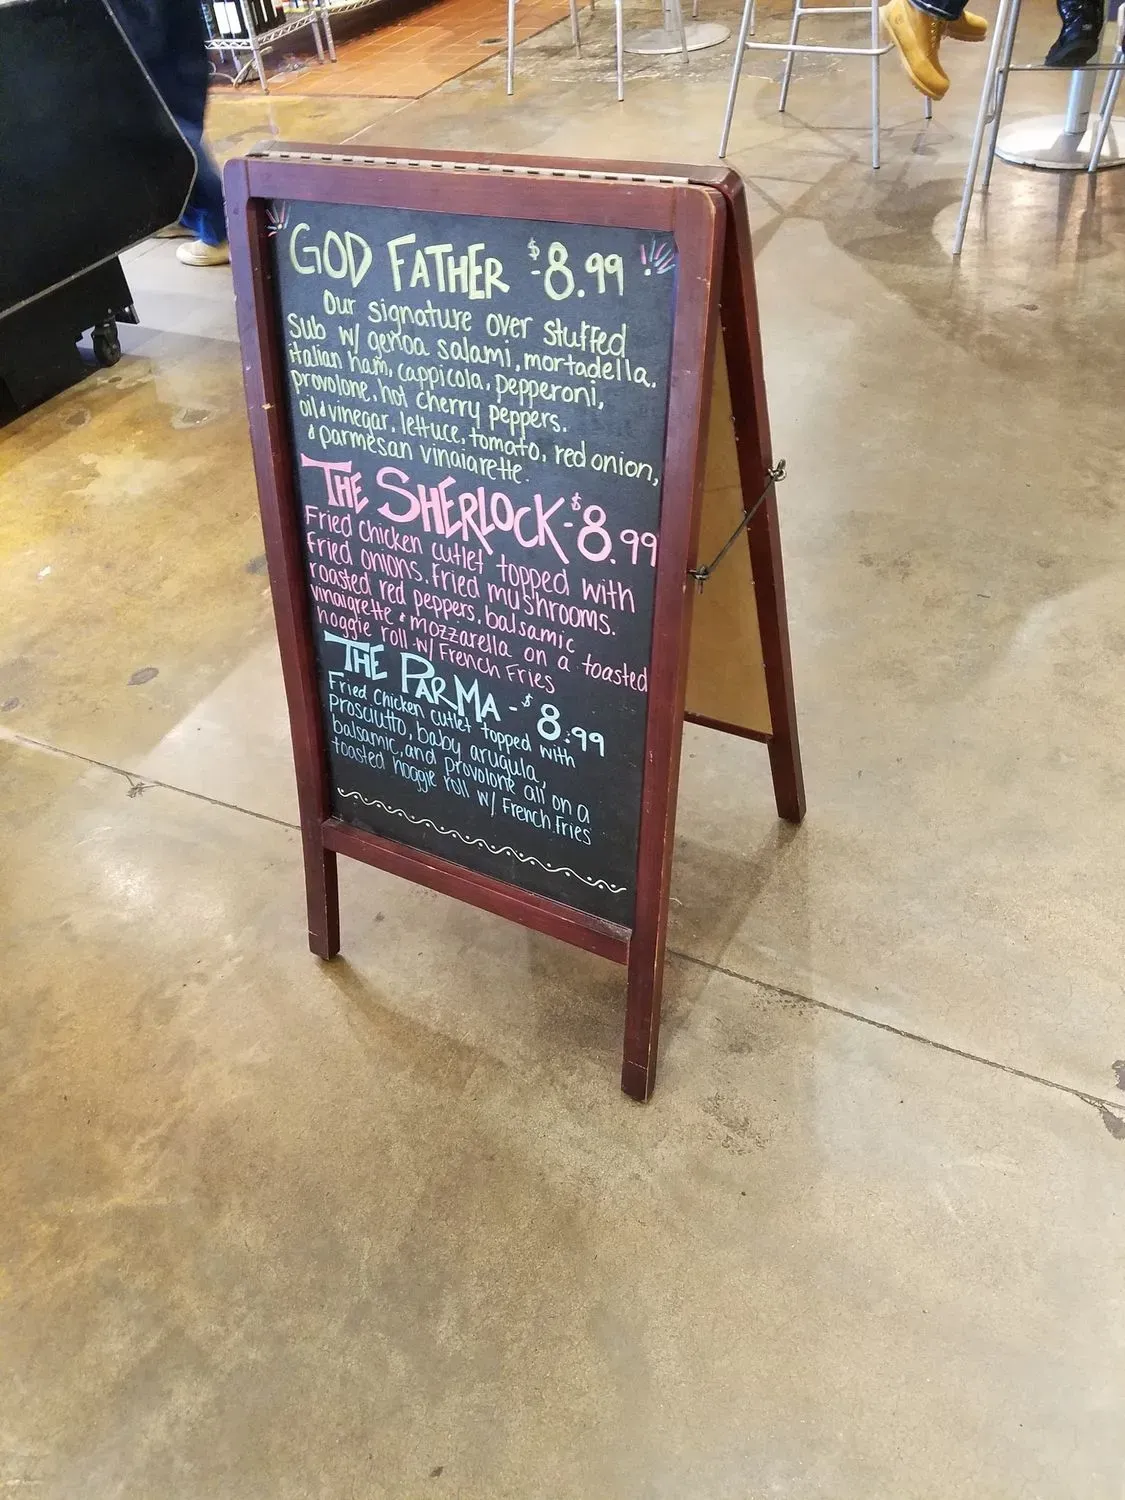 GOD FATHER -$8.99
Our signature over stuffed
Sub w/ genoa salami, mortadella,
italian ham, cappicola, pepperoni,
provolone, hot cherry peppers.
oil & vinegar, lettuce, tomato, red onion,
& parmesan vinaiarette.
THE SHERLOCK-$8.99
Fried chicken cutlet topped with
Fried onions, Fried mushrooms.
roasted red peppers, balsamic
vinaigrette & mozzarella on a toasted
hoggie roll w/ French Fries
THE PARMA -$8.99
Fried Chicken cutlet topped with
prosciutto, baby arugula,
balsamic, and provolone all on a
toasted hoggie roll w/ French Fries